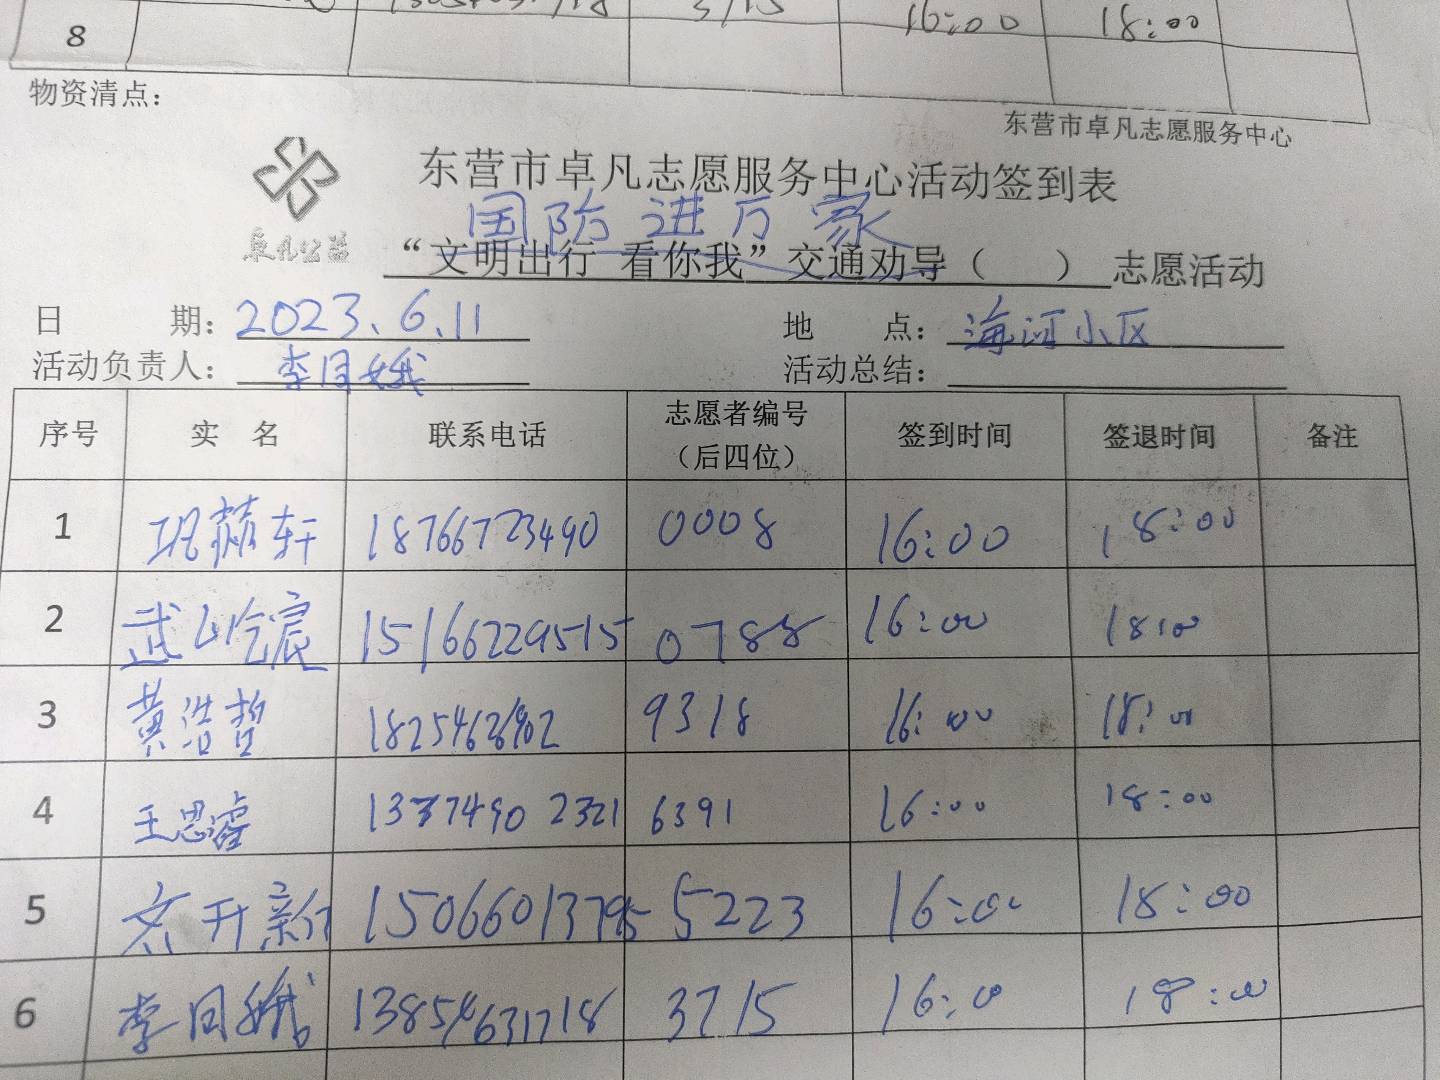 3715 16:00 18:00
8
物资清点：
东营市卓凡志愿服务中心
卓凡公益
东营市卓凡志愿服务中心活动签到表
国防进万家
“文明出行 看你我”交通劝导（ ）志愿活动
日 期： 2023.6.11 地 点： 海河小区
活动负责人： 李月娥 活动总结：
序号 实 名 联系电话 志愿者编号（后四位） 签到时间 签退时间 备注
1 巩赫轩 18766723490 0008 16:00 18:00
2 武屹宸 15166229515 0788 16:00 18:00
3 黄浩哲 9318 16:00 18:00
4 王思睿 13374902321 6391 16:00 18:00
5 15066013795 5223 16:00 18:00
6 李月娥 13854631718 3715 16:00 18:00